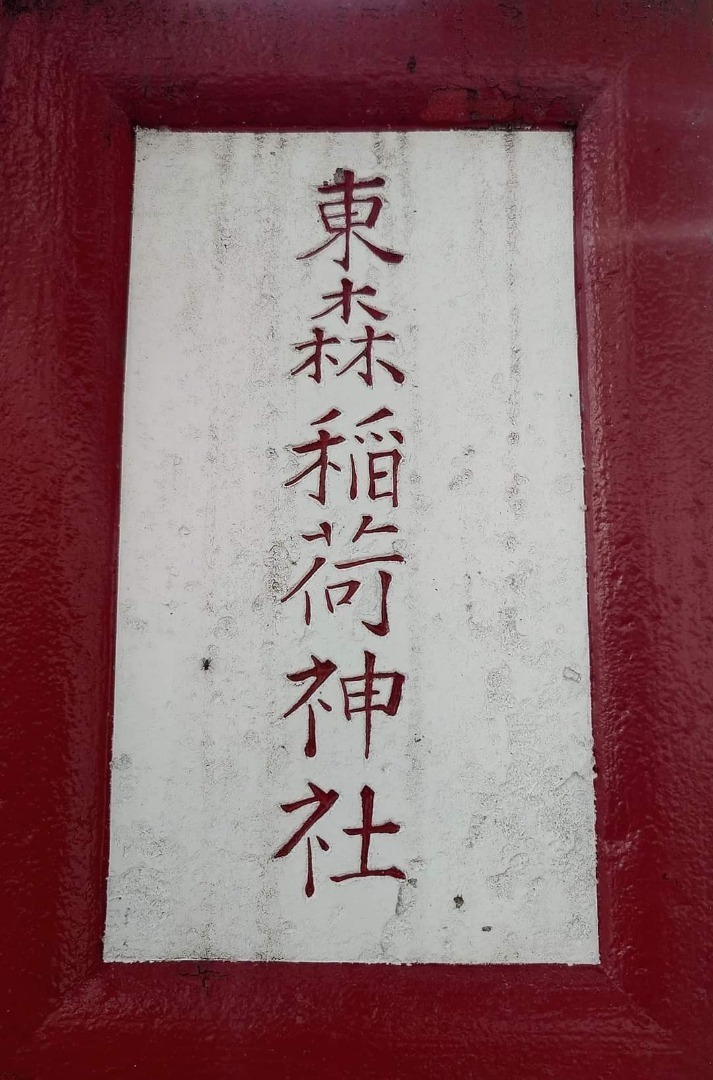 東森稲荷神社